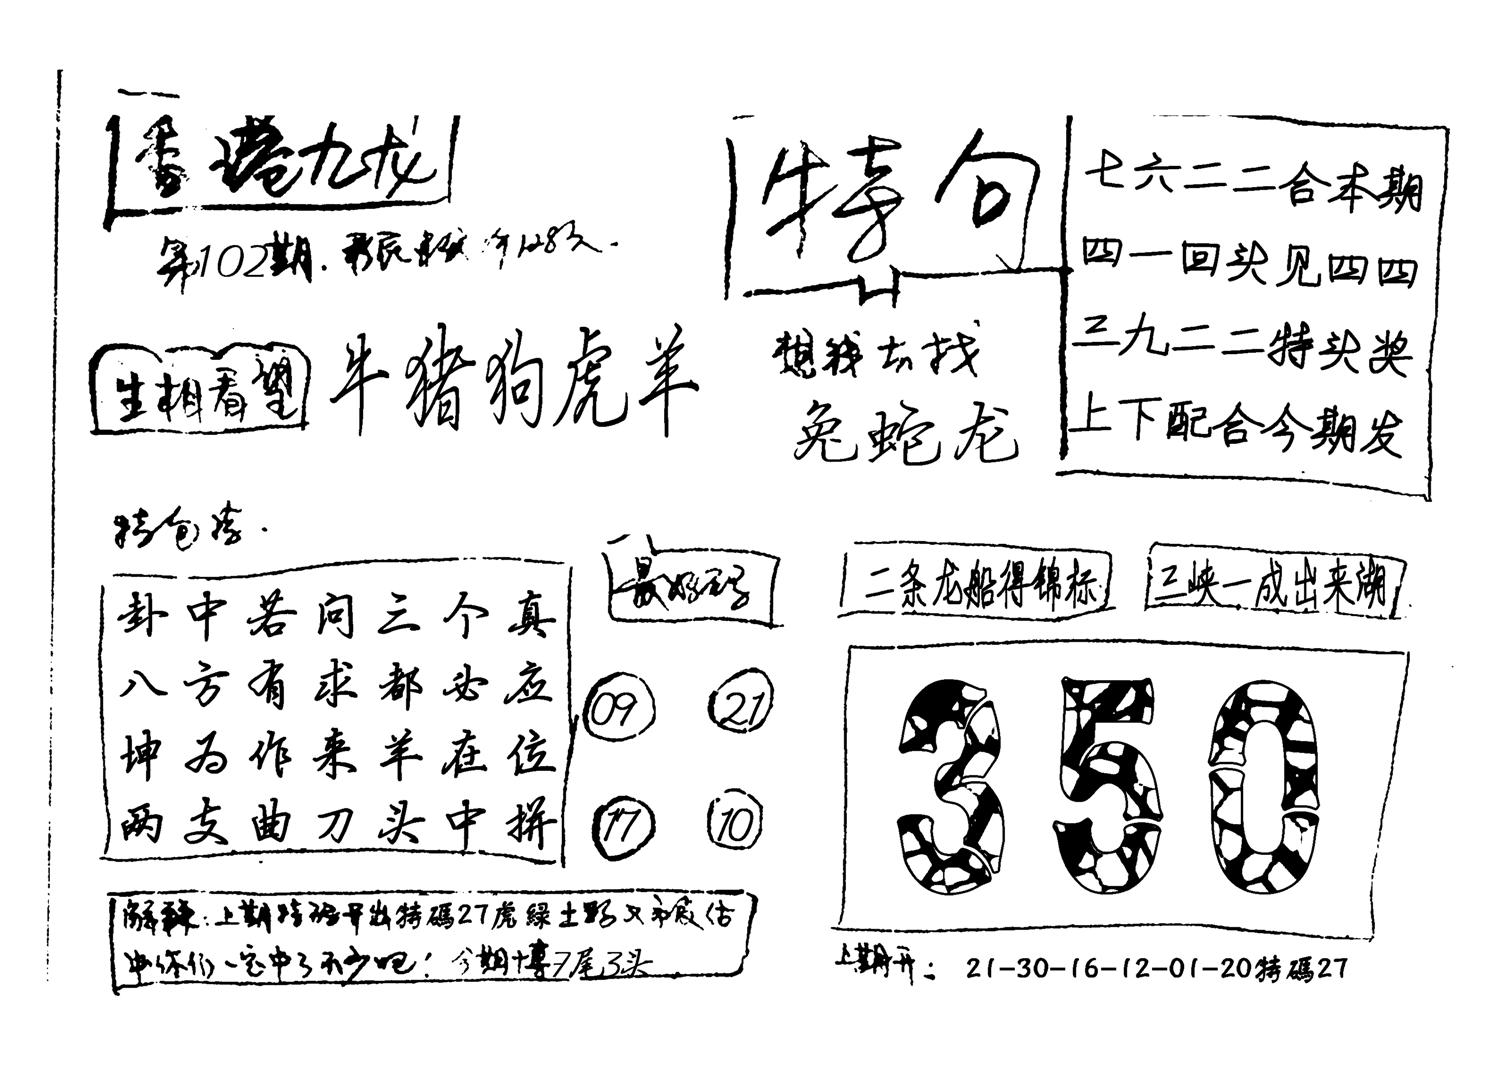 香港九龙
第102期.
生相看望
牛猪狗虎羊
特句
想钱去找
兔蛇龙
七六二二合本期
四一回头见四四
三九二二特头奖
上下配合今期发
特包
卦中若问三个真
八方有求都必应
坤为作来羊在位
两支曲刀头中拼
最好码
09
21
17
10
二条龙船得锦标
三峡一成出来湖
350
解：上期特码开出特碼27虎緑土
你们一定中了不少吧！今期博7尾3头
上期开： 21-30-16-12-01-20特碼27